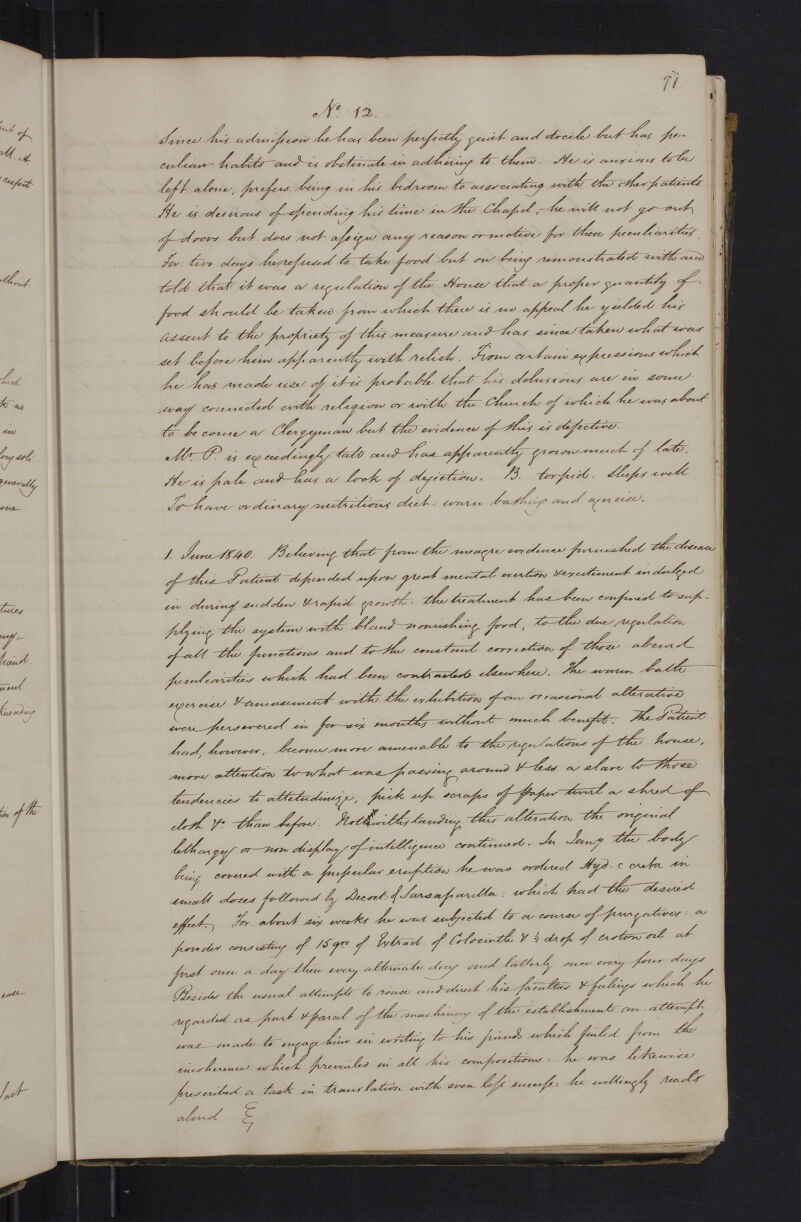 71.
No. 12.
Since his admission he has been perfectly quiet and docile but has pe-
culiar habits and is obstinate in adhering to them. He is anxious to be
left alone, prefers being in his bedroom to associating with the other patients
He is desirous of spending his time in the Chapel, - he will not go out
of doors but does not assign any reason or motive for these peculiarities
For two days he refused to take food but on being remonstrated with and
told that it was a regulation of the House that a proper quantity of
food should be taken from which there is no appeal he yielded his
assent to the propriety of this measure and has since taken what was
set before him apparently with relish. From certain expressions which
he has made use of it is probable that his delusions are in some
way connected with religion or with the Church of which he was about
to become a Clergyman but the evidence of this is defective.
Mr. P. is exceedingly tall and has apparently grown much of late.
He is pale and has a look of dejection. B. torpid. Sleeps well
To have ordinary nutritious diet. warm bathing and exercise.
1. June 1840. Believing that from the meagre evidence furnished the disease
of this Patient depended upon great mental exertion & excitement indulged
in during sudden & rapid growth. the treatment has been confined to sup-
plying the system with bland nourishing food, to the due regulation
of all the functions and to the constant correction of those absurd
peculiarities which had been contracted elsewhere. The warm bath
exercise & amusement with the exhibition of an occasional alterative
were persevered in for six months without much benefit. The Patient
had, however, become more amenable to the regulations of the house,
more attention to what was passing around & less a slave to those
tendencies to attetudinize, pick up scraps of paper twirl a shred of
cloth &c than before. Notwithstanding this alteration the original
lethargy or non display of intelligence continued. In Jany the body
being covered with a papular eruption he was ordered Hyd. c creta in
small doses followed by Decoct: of Sarsaparilla: which had the desired
effect. For about six weeks he was subjected to a course of purgatives: a
powder consisting of 15 grs of Extract of Colocinth & ½ drop of croton oil at
first once a day then every alternate day and latterly once every four days
Beside the usual attempts to rouse and direct his faculties & feelings which he
regarded as part & parcel of the machinery of the establishment an attempt
was made to engage him in writing to his friends which failed from the
incoherence which prevailed in all his compositions: he was likewise
prescribed a task in translation with even less success: he willingly reads
aloud